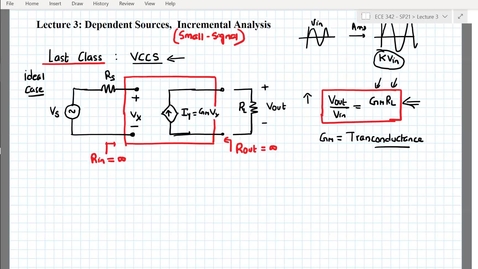 File Home Insert Draw View Help
ECE 342 - SP21 > Lecture 3
Lecture 3: Dependent Sources, Incremental Analysis
(Small-Signal)
Last Class : VCCS ←
Vin
Amp
KVin
ideal
case
Rs
Vs
+
Vx
−
I1 = GmVx
RL
+
Vout
−
Rin = ∞
Rout = ∞
↑ Vout/Vin = GmRL
Gm = Tranconductance